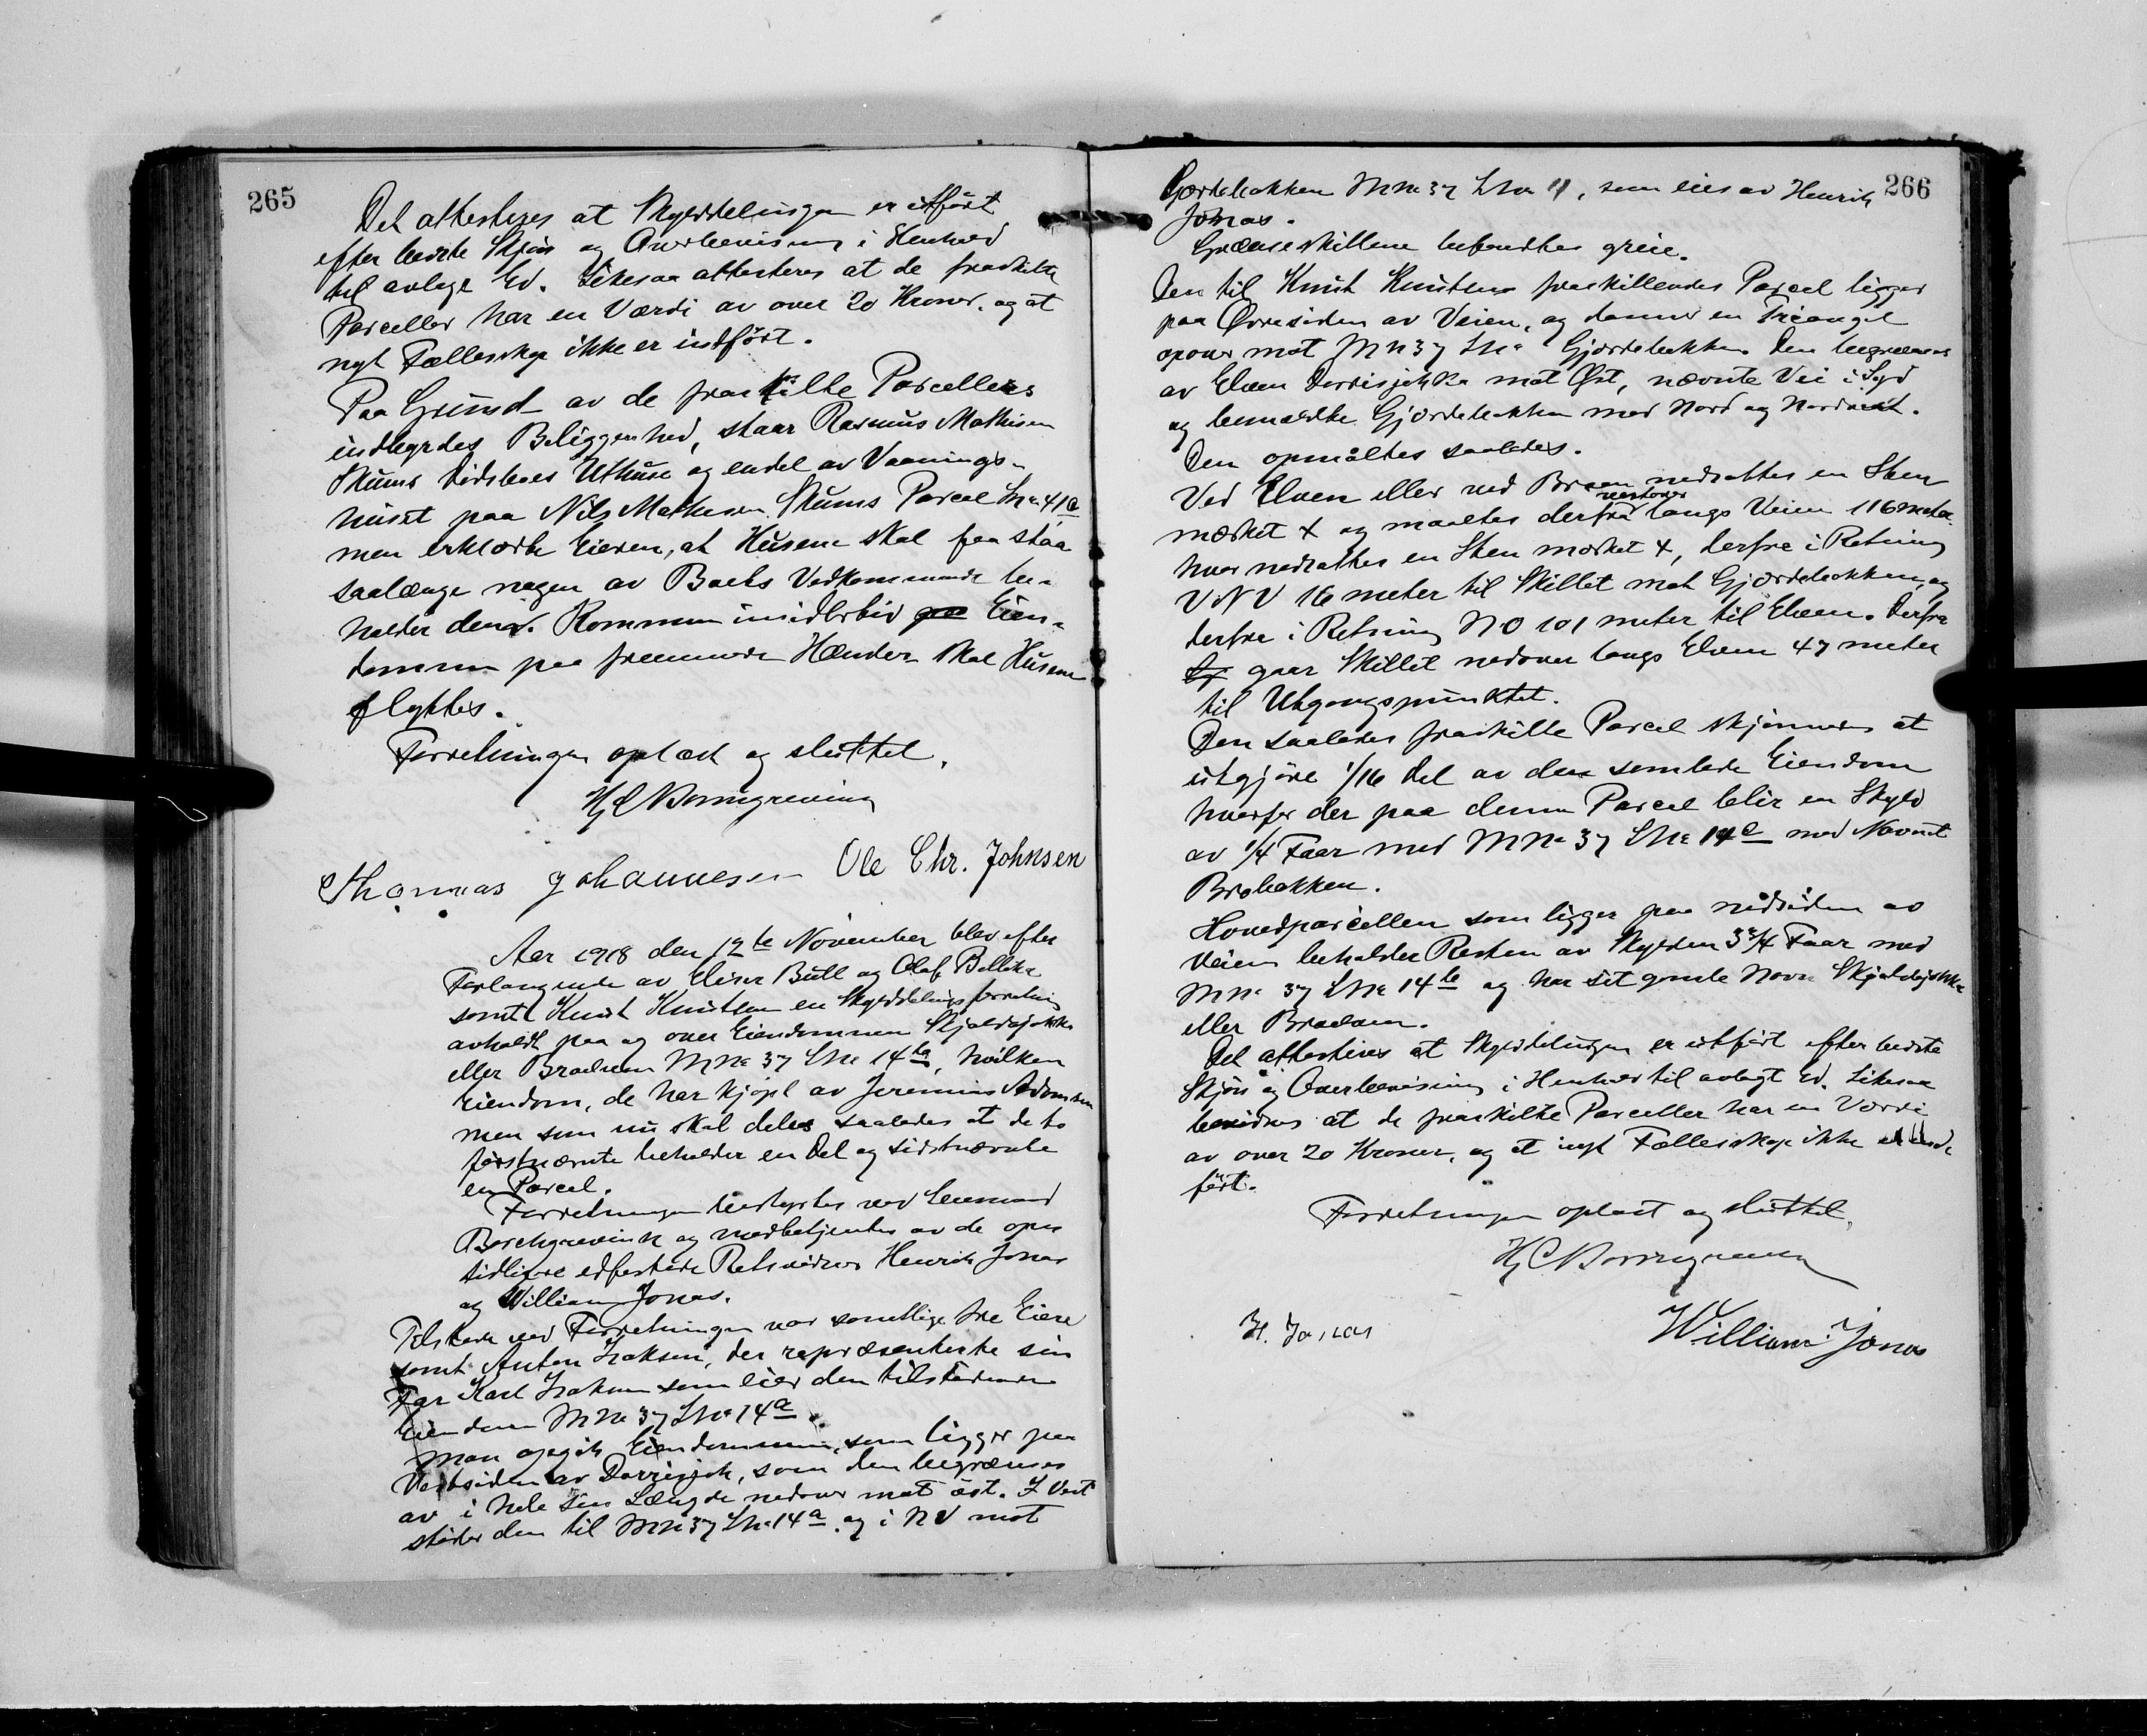 265
Det attesteres at Skylddelingen er utført
efter bedste Skjøn og Overbevisning i Henhold
til avlagt Ed. Likesaa attesteres at de fraskilte
Parceller har en Værdi av over 20 Kroner og at
nyt Fællesskap ikke er indført.
Paa Grund av de fraskilte Parcellers
indbyrdes Beliggenhed, staar Rasmus Mathisen
Skums Uthuse og endel av Vaanings-
huset paa Nils Mathisen Skums Parcel Lno 41 a
men erklærte Eieren, at Husene skal faa staa
saalænge nogen av Boets Vedkommende be-
holder dem. Kommer imidlertid Eien-
dommen paa fremmede Hænder skal Husene
flyttes.
Forretningen oplæst og sluttet.
Thomas Johannesen Ole Chr. Johnsen
Aar 1918 den 12te November blev efter
Forlangende av Elisar Bull og Olaf
samt Knut Knutsen en Skylddelingsforretning
avholdt paa og over Eiendommen
eller MNo 37 LNo 14 b, hvilken
Eiendom, de har kjøpt av Jeremias Adamsen
men som nu skal deles saaledes at de to
førstnævnte beholder en Del og sidstnævnte
en Parcel.
Forretningen bestyrtes ved Lensmand
Borchgrevink og medbetjentes av de open
tidligere edfæstede Retsvidner Henrik Jonas
og William Jonas.
Tilstede ved Forretningen var samtlige tre Eiere
samt Anton Isaksen, der repræsenterte sin
Far Karl Isaksen som eier den tilstøtende
Eiendom MNo 37 LNo 14 a.
Man opgik Eiendommen, som ligger paa
Vestsiden av, som den begrænses
av i hele sin Længde nedover mot øst. I Vest
støter den til MNo 37 LNo 14 a og i NV mot
266
Gjærdebakken MNo 37 LNo 11, som eies av Henrik
Jonas.
Grænseskillene befandtes greie.
Den til Knut Knutsen fraskillendes Parcel ligger
paa Øvresiden av Veien, og danner en Triangel
opover mot MNo 37 LNo Gjærdebakken. Den begrænses
av Elven mot Øst, nævnte Vei i Syd
og bemældte Gjærdebakken med Nord og Nordvest.
Den opmåltes saaledes.
Ved Elven eller ved Broen nedsattes en Sten
mærket + og maaltes derfra vestover langs Veien 116 meter
hvor nedsattes en Sten mærket +, derfra i Retning
VNV 16 meter til Skillet mot Gjærdebakken, og
derfra i Retning NO 101 meter til Elven. Derfra
gaar Skillet nedover langs Elven 47 meter
til Utgangspunktet.
Den saaledes fraskilte Parcel skjønnes at
utgjøre 1/16 Del av den samlede Eiendom
hvorfor der paa denne Parcel blir en Skyld
av 1/4 Faar med MNo 37 LNo 14 c med Navnet
Brobakken.
Hovedparcellen som ligger paa nedsiden av
Veien beholder Resten av Skylden 3 3/4 Faar med
MNo 37 LNo 14 b og har sit gamle Navn
eller
Det attesteres at Skylddelingen er utført efter bedste
Skjøn og Overbevisning i Henhold til avlagt Ed. Likesaa
bevidnes at de fraskilte Parceller har en Værdi
av over 20 Kroner, og at nyt Fællesskap ikke er ind-
ført.
Forretningen oplæst og sluttet.
H. Jonas William Jonas